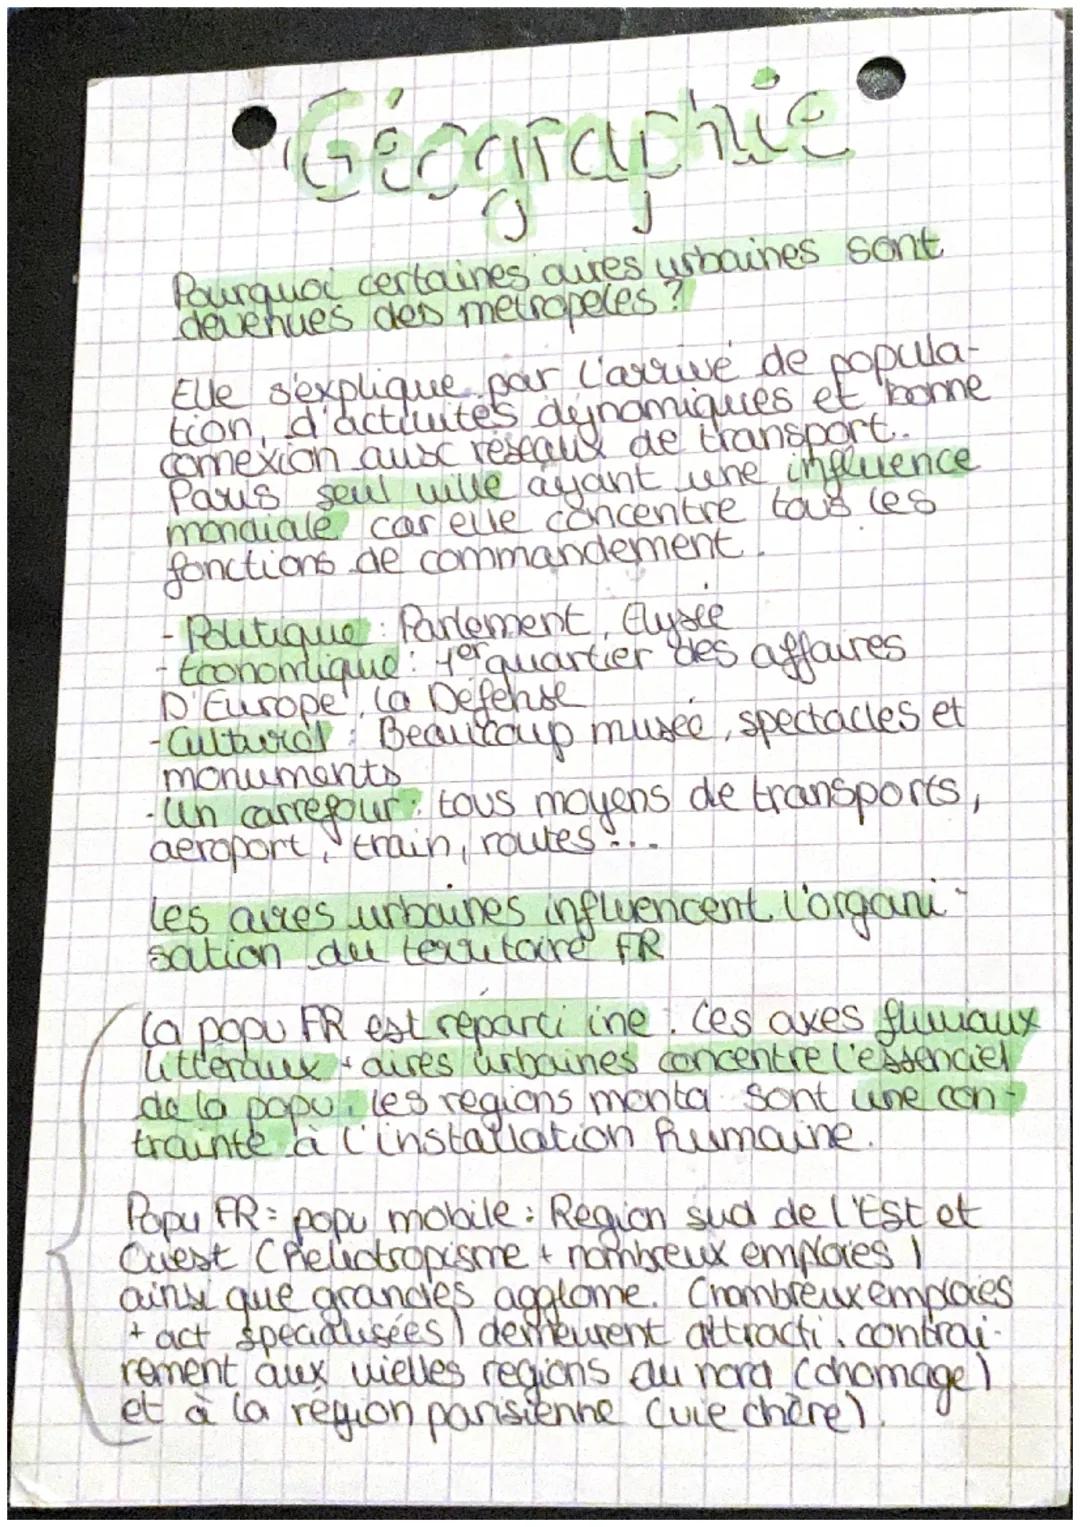 Géographie
Pourquoi certaines aires urbaines sont
devenues des metropeles ?
Elle s'explique par l'arrivé de popula-
tion, d'activités dynamiques et bonne
connexion aux réseaux de transport.
Paris seul ville ayant une influence
mondiale car elle concentre tous les
fonctions de commandement.
- Politique : Parlement, Elysée
- Economique : 1er quartier des affaires
D'Europe, la Défense
- Cultural : Beaucoup musée, spectacles et
monuments
- Un carrefour : tous moyens de transports,
aeroport, train, routes...
Les aires urbaines influencent l'organi-
sation du territoire FR
La popu FR est réparti ine. Les axes fluviaux
litteraux + aires urbaines concentre l'essenciel
de la popu. les regions monta sont une con-
trainte à l'installation humaine.
Popu FR = popu mobile : Region sud de l'Est et
Ouest (heliotropisme + nombreux emploies)
ainsi que grandes agglome. (nombreux emploies
+ act specialisées) demeurent attracti. contrai-
rement aux vielles regions du nord (chomage)
et à la région parisienne (vie chère).